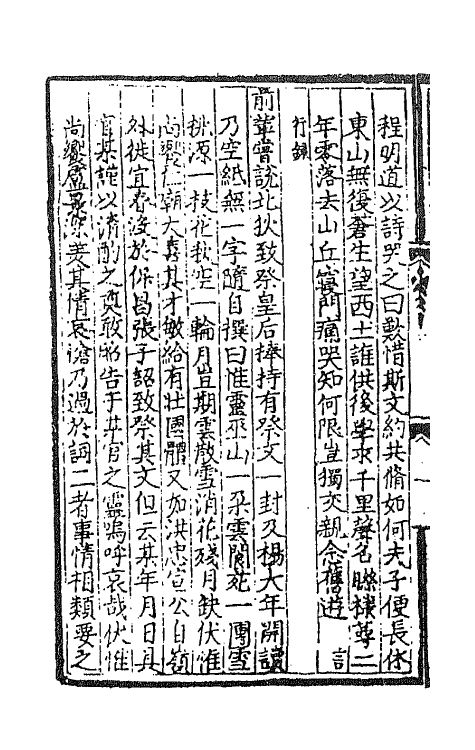 程明道以詩哭之曰歎惜斯文約共脩如何夫子便長休
東山無復蒼生望西土誰供後學求千里聲名聯棣萼二
年零落去山丘寢門痛哭知何限豈獨交親念舊遊　言
行錄
前輩嘗說北狄致祭皇后捧持有祭文一封及楊大年開讀
乃空紙無一字隨自撰曰惟靈巫山一朶雲閬苑一團雪
桃源一枝花秋空一輪月豈期雲散雪消花殘月缺伏惟
尚饗仁朝大喜其才敏給有壯國體又如洪忠宣公自嶺
外徙宜春沒於保昌張子韶致祭其文但云某年月日具
官某謹以清酌之奠敢昭告于某官之靈嗚呼哀哉伏惟
尚饗景深美其情哀愴乃過於詞二者事情相類要之